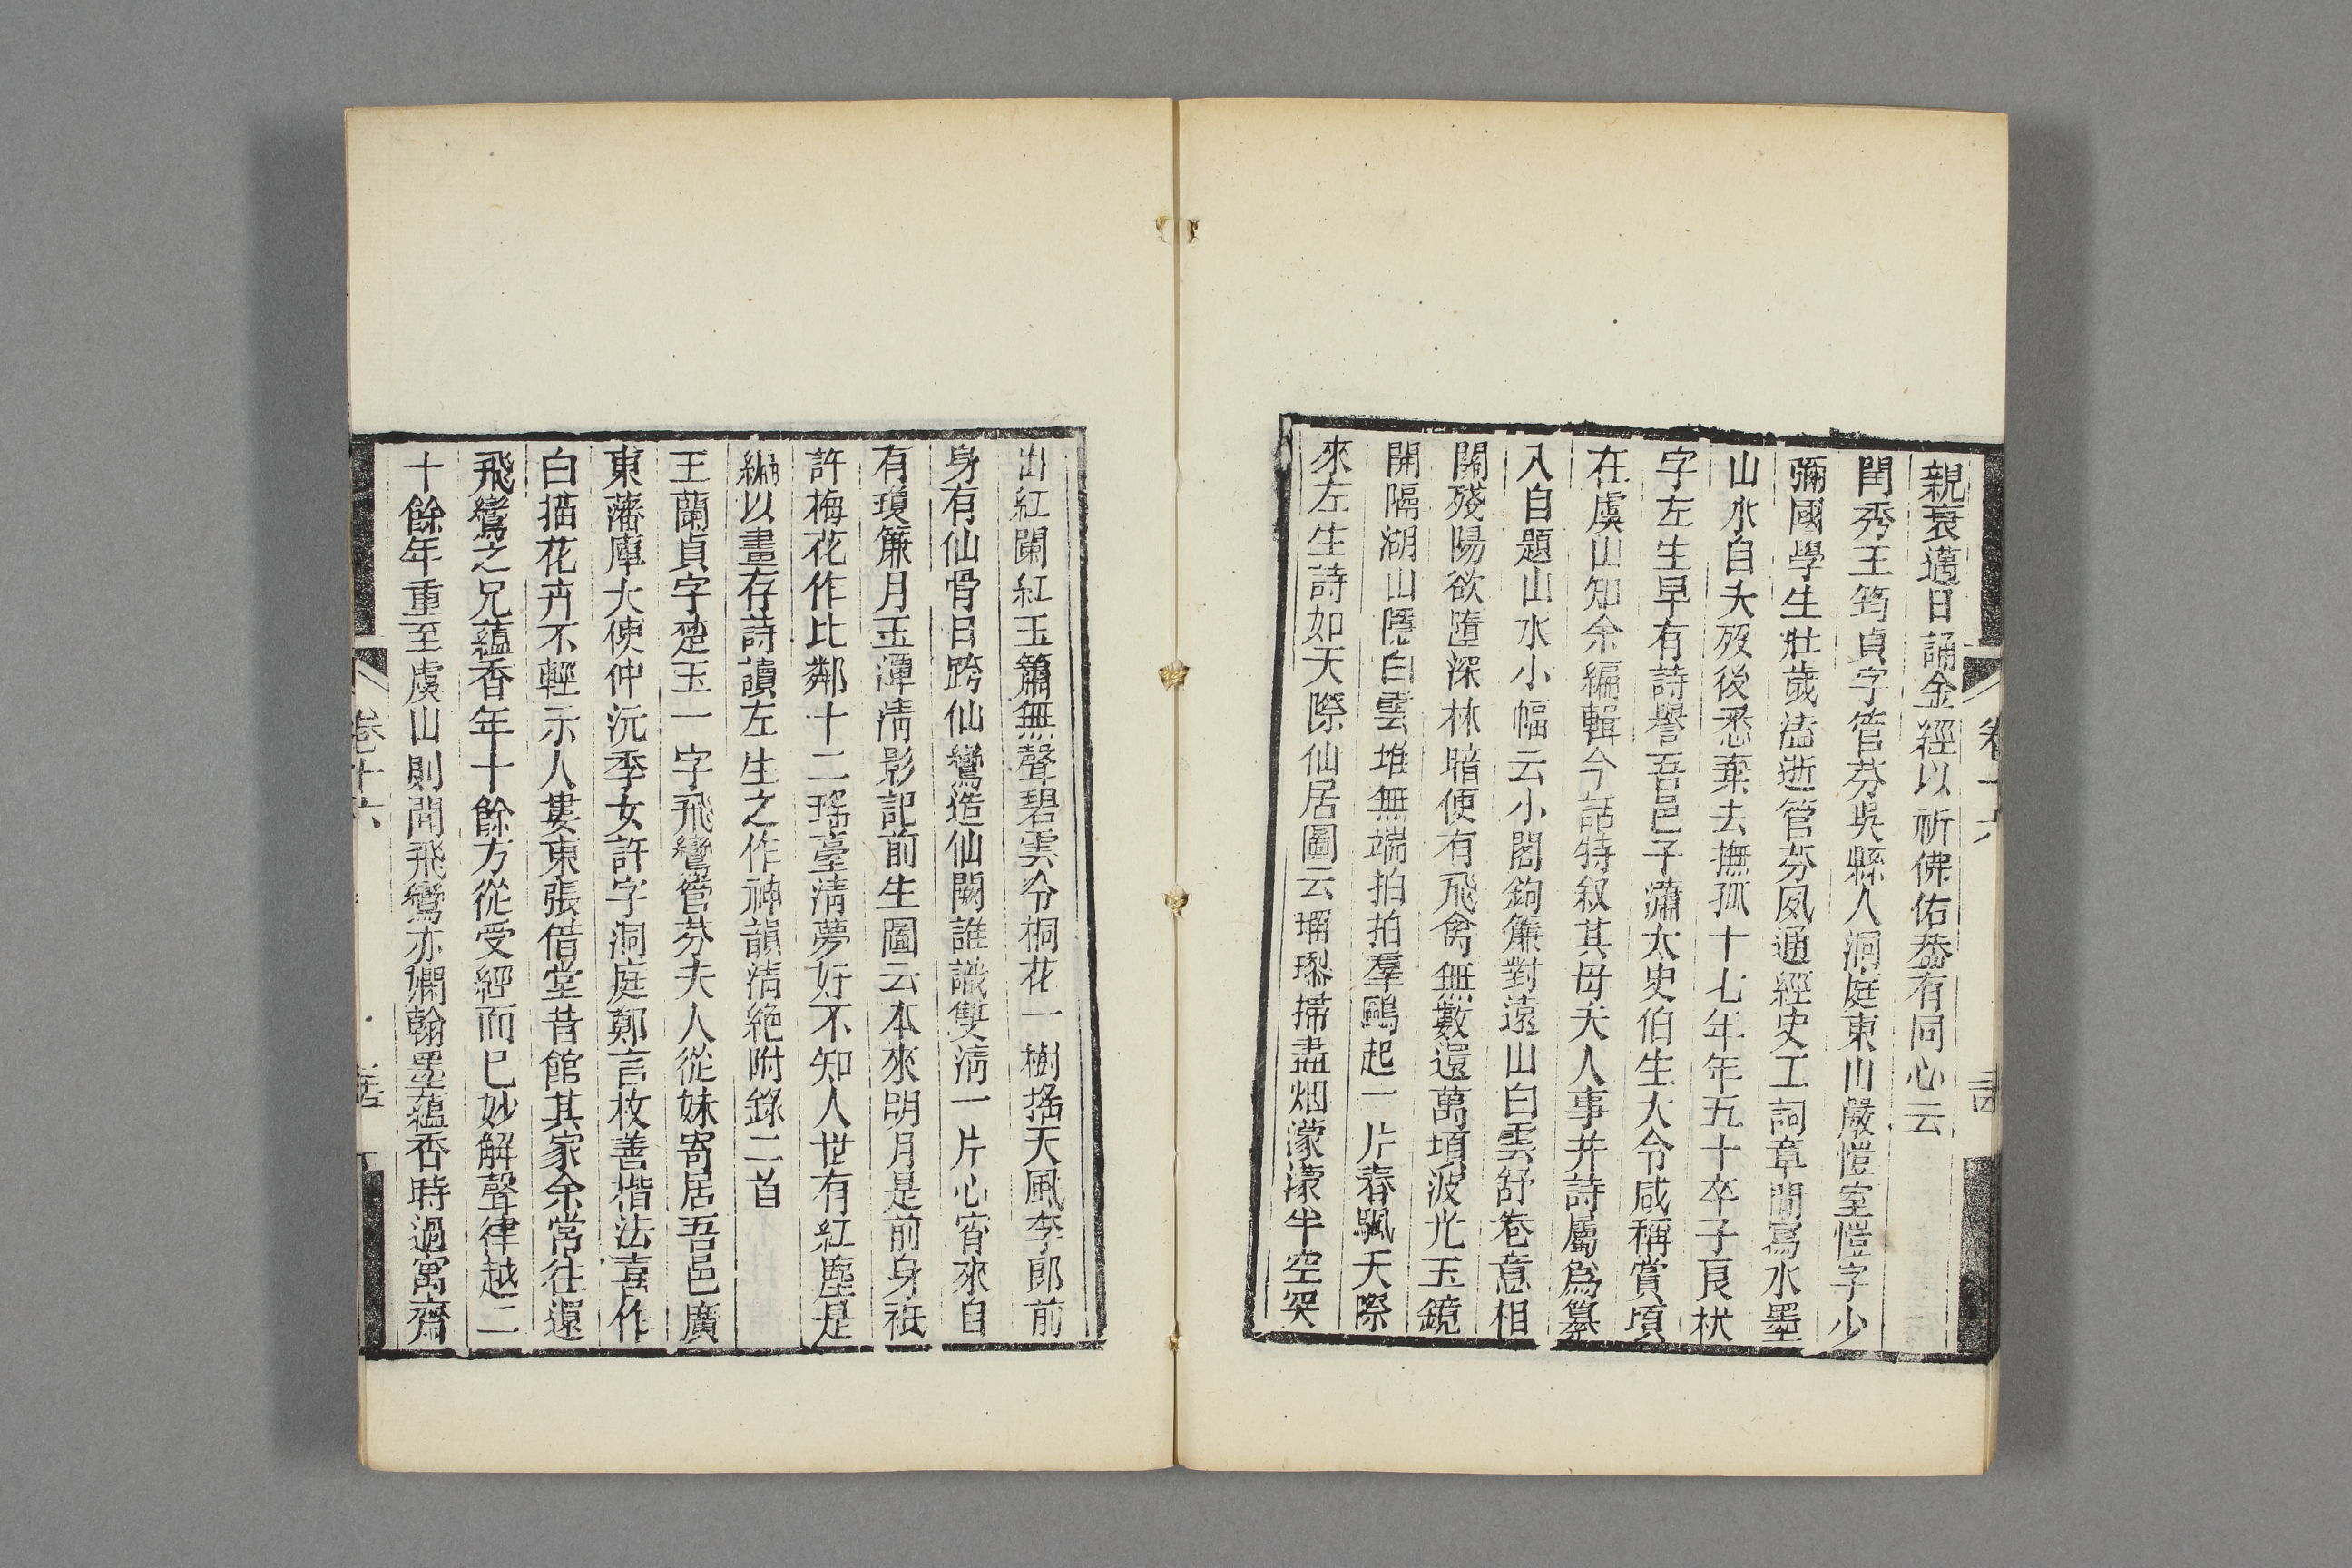 親衰邁日誦金經以祈佛佑葢有同心云
閨秀王筠貞字管芬吳縣人洞庭東山嚴愷室愷字少
彌國學生壯歲溘逝管芬夙通經史工詞章閒寫水墨
山水自夫歿後悉棄去撫孤十七年年五十卒子良栿
字左生早有詩譽吾邑子瀟太史伯生大令咸稱賞頃
在虞山知余編輯今話特叙其母夫人事并詩屬爲纂
入自題山水小幅云小閣鉤簾對遠山白雲舒卷意相
關殘陽欲墮深林暗便有飛禽無數還萬頃波光玉鏡
開隔湖山隱白雲堆無端拍拍羣鷗起一片春颿天際
來左生詩如天際仙居圖云珊瓈掃盡烟濛濛半空突
卷十六
出紅闌紅玉簫無聲碧雲冷桐花一樹搖天風李郎前
身有仙骨日跨仙鸞造仙闕誰識雙清一片心宵來自
有瓊簾月玉潭清影記前生圖云本來明月是前身祗
許梅花作比鄰十二瑤臺清夢好不知人世有紅塵是
編以畫存詩讀左生之作神韻清絶附錄二首
王蘭貞字楚玉一字飛鸞管芬夫人從妹寄居吾邑廣
東藩庫大使仲沅季女許字洞庭鄭言枚善楷法喜作
白描花卉不輕示人婁東張借堂昔館其家余常往還
飛鸞之兄蘊香年十餘方從受經而已妙解聲律越二
十餘年重至虞山則聞飛鸞亦嫻翰墨蘊香時過寓齋
卷十六